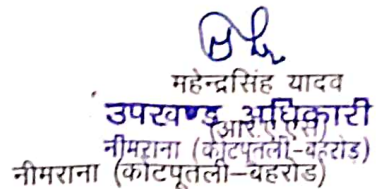 महेन्द्रसिंह यादव
उपखण्ड अधिकारी
(आर.ए.एस)
नीमराना (कोटपूतली-बहरोड़)
नीमराना (कोटपूतली-बहरोड)